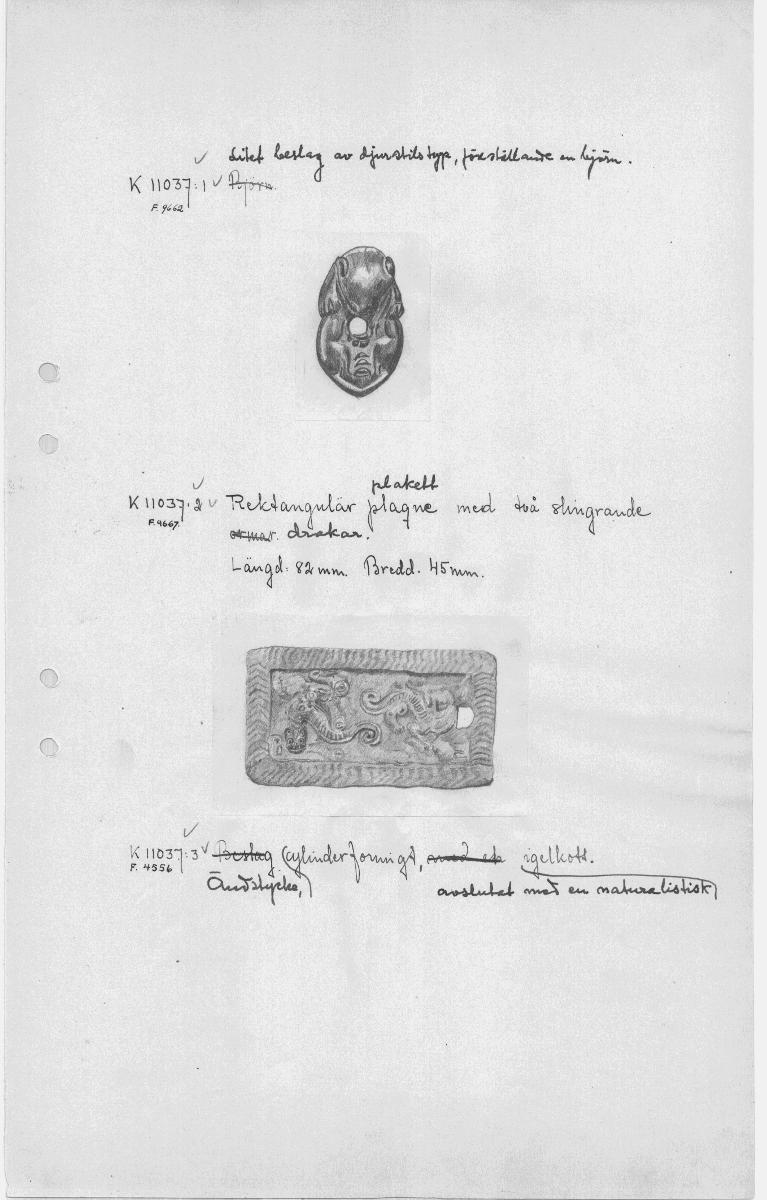 Litet beslag av djurstilstyp, föreställande en björn.
K 11037:1 Björn.
F. 9662
plakett
K 11037:2 Rektangulär plaque med två slingrande
F. 9667.
ormar. drakar.
Längd: 82 mm. Bredd. 45 mm.
K 11037:3 Beslag Cylinderformigt, med en igelkott.
F. 4556
Ändstycke, avslutat med en naturalistisk